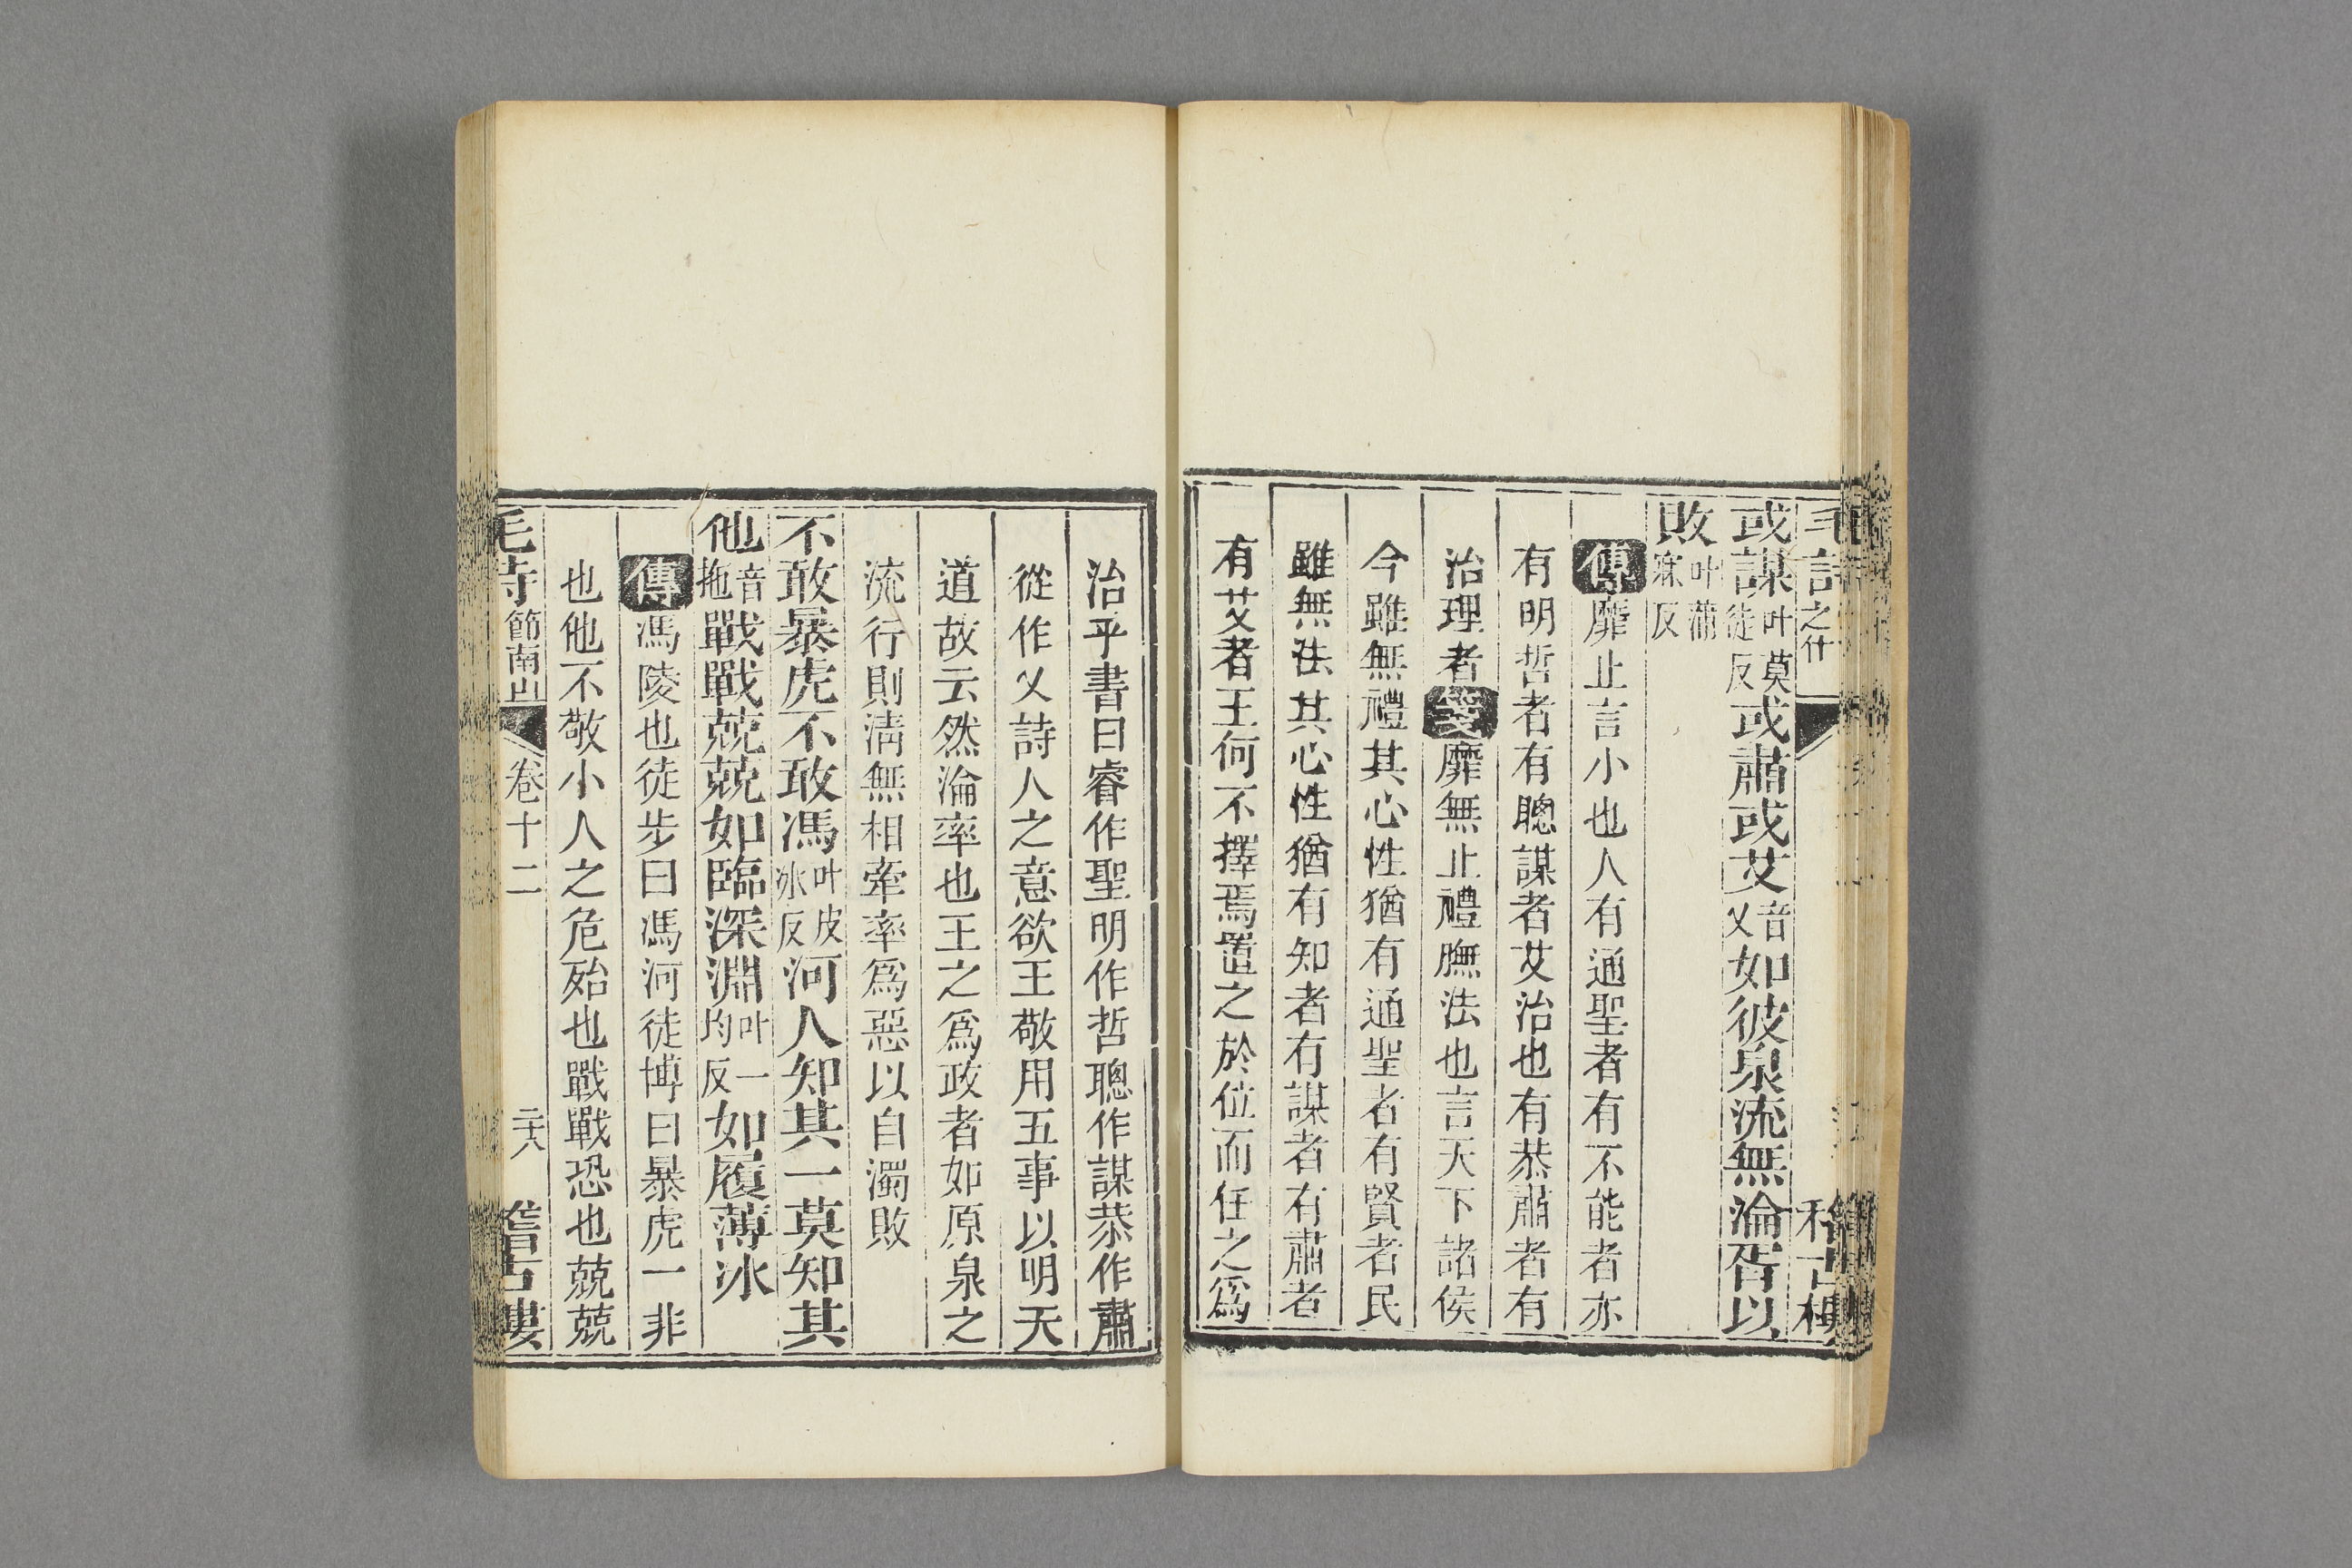 毛詩之什
或謀叶莫徒反或肅或艾音乂如彼泉流無淪胥以
敗叶蒲寐反
傳靡止言小也人有通聖者有不能者亦
有明哲者有聰謀者艾治也有恭肅者有
治理者箋靡無止禮膴法也言天下諸侯
今雖無禮其心性猶有通聖者有賢者民
雖無法其心性猶有知者有謀者有肅者
有艾者王何不擇焉置之於位而任之爲
治乎書曰睿作聖明作哲聰作謀恭作肅
從作乂詩人之意欲王敬用五事以明天
道故云然淪率也王之爲政者如原泉之
流行則清無相牽率爲惡以自濁敗
不敢暴虎不敢馮叶皮冰反河人知其一莫知其
他音拖戰戰兢兢如臨深淵叶一均反如履薄冰
傳馮陵也徒步曰馮河徒博曰暴虎一非
也他不敬小人之危殆也戰戰恐也兢兢
毛詩節南山 卷十二 二十八